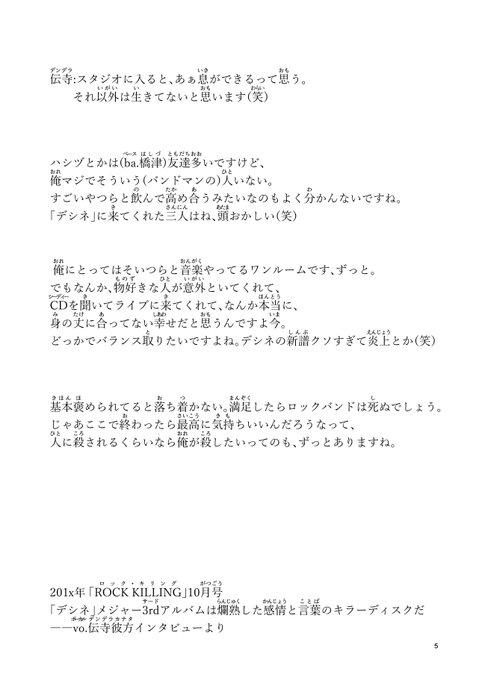 伝寺:スタジオに入ると、あぁ息ができるって思う。
それ以外は生きてないと思います(笑)
ハシヅとかは(ba.橋津)友達多いですけど、
俺マジでそういう(バンドマンの)人いない。
すごいやつらと飲んで高め合うみたいなのもよく分かんないですね。
「デシネ」に来てくれた三人はね、頭おかしい(笑)
俺にとってはそいつらと音楽やってるワンルームです、ずっと。
でもなんか、物好きな人が意外といてくれて、
CDを聞いてライブに来てくれて、なんか本当に、
身の丈に合ってない幸せだと思うんですよ今。
どっかでバランス取りたいですよね。デシネの新譜クソすぎて炎上とか(笑)
基本褒められてると落ち着かない。満足したらロックバンドは死ぬでしょう。
じゃあここで終わったら最高に気持ちいいんだろうなって、
人に殺されるくらいなら俺が殺したいってのも、ずっとありますね。
201x年「ROCK KILLING」10月号
「デシネ」メジャー3rdアルバムは爛熟した感情と言葉のキラーディスクだ
――vo.伝寺彼方インタビューより
5